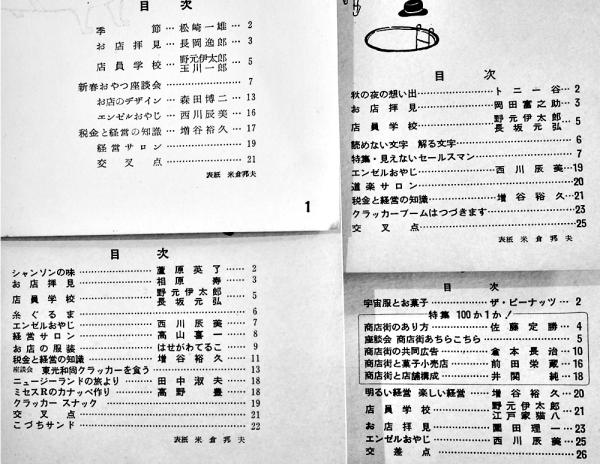 目次
季節……松崎一雄……2
お店拝見……長岡逸郎……3
店員学校……野元伊太郎 玉川一郎……5
新春おやつ座談会……7
お店のデザイン……森田博二……13
エンゼルおやじ……西川辰美……16
税金と経営の知識……増谷裕久……17
経営サロン……19
交叉点……21
表紙 米倉邦夫
1
目次
秋の夜の想い出……トニー谷……2
お店拝見……岡田富之助……3
店員学校……野元伊太郎 長坂元弘……5
読めない文字 解る文字……6
特集・見えないセールスマン……7
エンゼルおやじ……西川辰美……19
道楽サロン……20
税金と経営の知識……増谷裕久……21
クラッカーブームはつづきます……23
交叉点……25
表紙 米倉邦夫
目次
シャンソンの味……蘆原英了……2
お店拝見……相原寿……3
店員学校……野元伊太郎 長坂元弘……5
糸ぐるま……6
エンゼルおやじ……西川辰美……7
経営サロン……高山喜一……8
お店の服装……はせがわてるこ……9
税金と経営の知識……増谷裕久……11
座談会 東元和尚クラッカーを食う……13
ニュージーランドの旅より……田中淑夫……18
ミセスRのカナッペ作り……高野豊……18
クラッカー スナック……19
交叉点……21
こづちサンド……22
表紙 米倉邦夫
目次
宇宙服とお菓子……ザ・ピーナッツ……2
特集 100か1か!
商店街のあり方……佐藤定勝……4
座談会 商店街あちらこちら……5
商店街の共同広告……倉本長治……10
商店街と菓子小売店……前田栄蔵……16
商店街と店舗構成……井関純……18
明るい経営 楽しい経営……増谷裕久……20
店員学校……野元伊太郎 江戸家猫八……21
お店拝見……園田理一……23
エンゼルおやじ……西川辰美……25
交差点……26